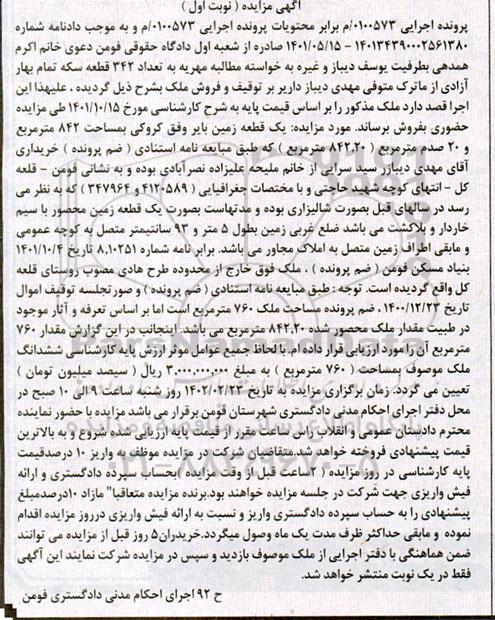 آگهی مزایده ( نوبت اول )
پرونده اجرایی ۰۱۰۰۵۷۳/م برابر محتویات پرونده اجرایی ۰۱۰۰۵۷۳/م و به موجب دادنامه شماره
۱۴۰۱۳۴۳۹۰۰۰۲۵۶۱۳۸۰ – ۱۴۰۱/۰۵/۱۵ صادره از شعبه اول دادگاه حقوقی فومن دعوی خانم اکرم
همدهی بطرفیت یوسف دیباز و غیره به خواسته مطالبه مهریه به تعداد ۳۴۲ قطعه سکه تمام بهار
آزادی از ماترک متوفی مهدی دیباز داریر بر توقیف و فروش ملک بشرح ذیل گردیده ، علیهذا این
اجرا قصد دارد ملک مذکور را بر اساس قیمت پایه به شرح کارشناسی مورخ ۱۴۰۱/۱۰/۱۵ طی مزایده
حضوری بفروش برساند. مورد مزایده: یک قطعه زمین بایر وفق کروکی بمساحت ۸۴۲ مترمربع
و ۲۰ صدم مترمربع ( ۸۴۲,۲۰ مترمربع ) که طبق مبایعه نامه استنادی ( ضم پرونده ) خریداری
آقای مهدی دیبازر سید سرایی از خانم ملیحه علیزاده نصرآبادی بوده و به نشانی فومن – قلعه
کل – انتهای کوچه شهید حاجتی و با مختصات جغرافیایی ( ۴۱۲۰۵۸۹ و ۳۴۷۹۶۴ ) که به نظر می
رسد در سالهای قبل بصورت شالیزاری بوده و مدتهاست بصورت یک قطعه زمین محصور با سیم
خاردار و بلاکشت می باشد ضلع غربی زمین بطول ۵ متر و ۹۳ سانتیمتر متصل به کوچه عمومی
و مابقی اطراف زمین متصل به املاک مجاور می باشد. برابر نامه شماره ۸,۱۰۲۵۱ تاریخ ۱۴۰۱/۱۰/۴
بنیاد مسکن فومن ( ضم پرونده ) ، ملک فوق خارج از محدوده طرح هادی مصوب روستای قلعه
کل واقع گردیده است. توجه : طبق مبایعه نامه استنادی ( ضم پرونده ) و صورتجلسه توقیف اموال
تاریخ ۱۴۰۰/۱۲/۲۳، ضم پرونده مساحت ملک ۷۶۰ مترمربع است اما بر اساس تعرفه و آثار موجود
در طبیعت مقدار ملک محصور شده ۸۴۲,۲۰ مترمربع می باشد. اینجانب در این گزارش مقدار ۷۶۰
مترمربع آن را مورد ارزیابی قرار داده ام. با لحاظ جمیع عوامل موثر ارزش پایه کارشناسی ششدانگ
ملک موصوف بمساحت ( ۷۶۰ مترمربع ) به مبلغ ۳,۰۰۰,۰۰۰,۰۰۰ ریال ( سیصد میلیون تومان )
تعیین می گردد. زمان برگزاری مزایده به تاریخ ۱۴۰۲/۰۲/۲۳ روز شنبه ساعت ۹ الی ۱۰ صبح در
محل دفتر اجرای احکام مدنی دادگستری شهرستان فومن برقرار می باشد مزایده با حضور نماینده
محترم دادستان عمومی و انقلاب راس ساعت مقرر از قیمت پایه ارزیابی شده شروع و به بالاترین
قیمت پیشنهادی فروخته خواهد شد.متقاضیان شرکت در مزایده موظف به واریز ۱۰ درصدقیمت
پایه کارشناسی در روز مزایده ( ۲ساعت قبل از وقت مزایده )بحساب سپرده دادگستری و ارائه
فیش واریزی جهت شرکت در جلسه مزایده خواهند بود.برنده مزایده متعاقبا" مازاد ۱۰درصدمبلغ
پیشنهادی را به حساب سپرده دادگستری واریز و نسبت به ارائه فیش واریزی درروز مزایده اقدام
نموده و مابقی حداکثر ظرف مدت یک ماه وصول میگردد.خریداران۵ روز قبل از مزایده می توانند
ضمن هماهنگی با دفتر اجرایی از ملک موصوف بازدید و سپس در مزایده شرکت نمایند این آگهی
فقط در یک نوبت منتشر خواهد شد.
ح ۹۲ اجرای احکام مدنی دادگستری فومن